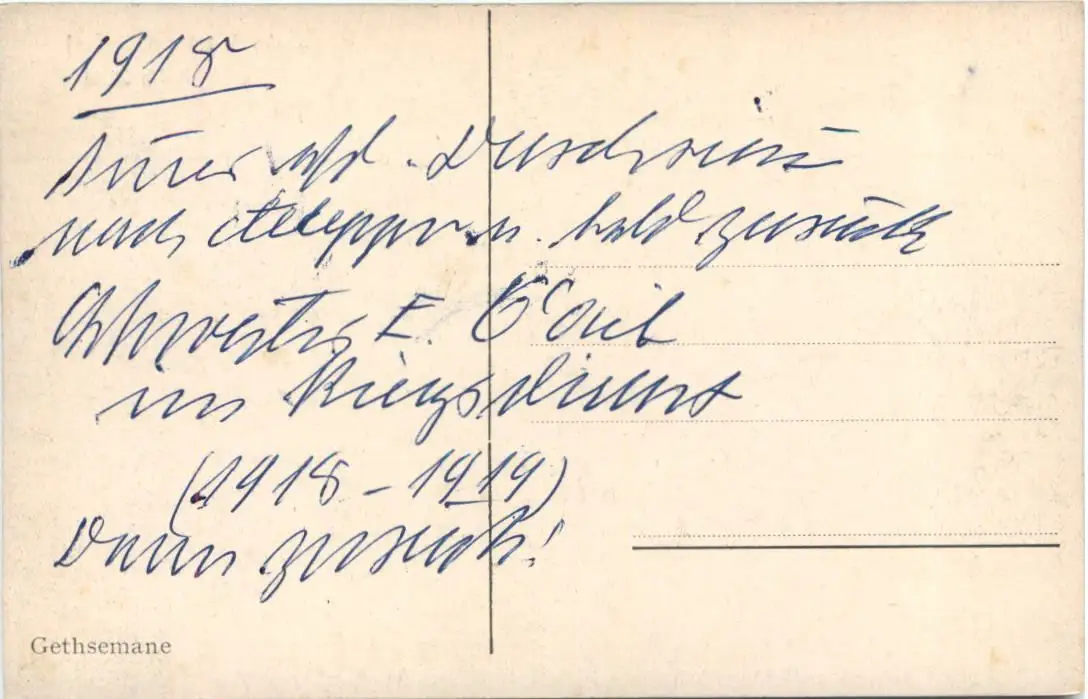 1918
Durchreise
nach Aleppo u. bald zurück
Schwester E.
im Kriegsdienst
(1918 - 1919)
Dann zurück!
Gethsemane